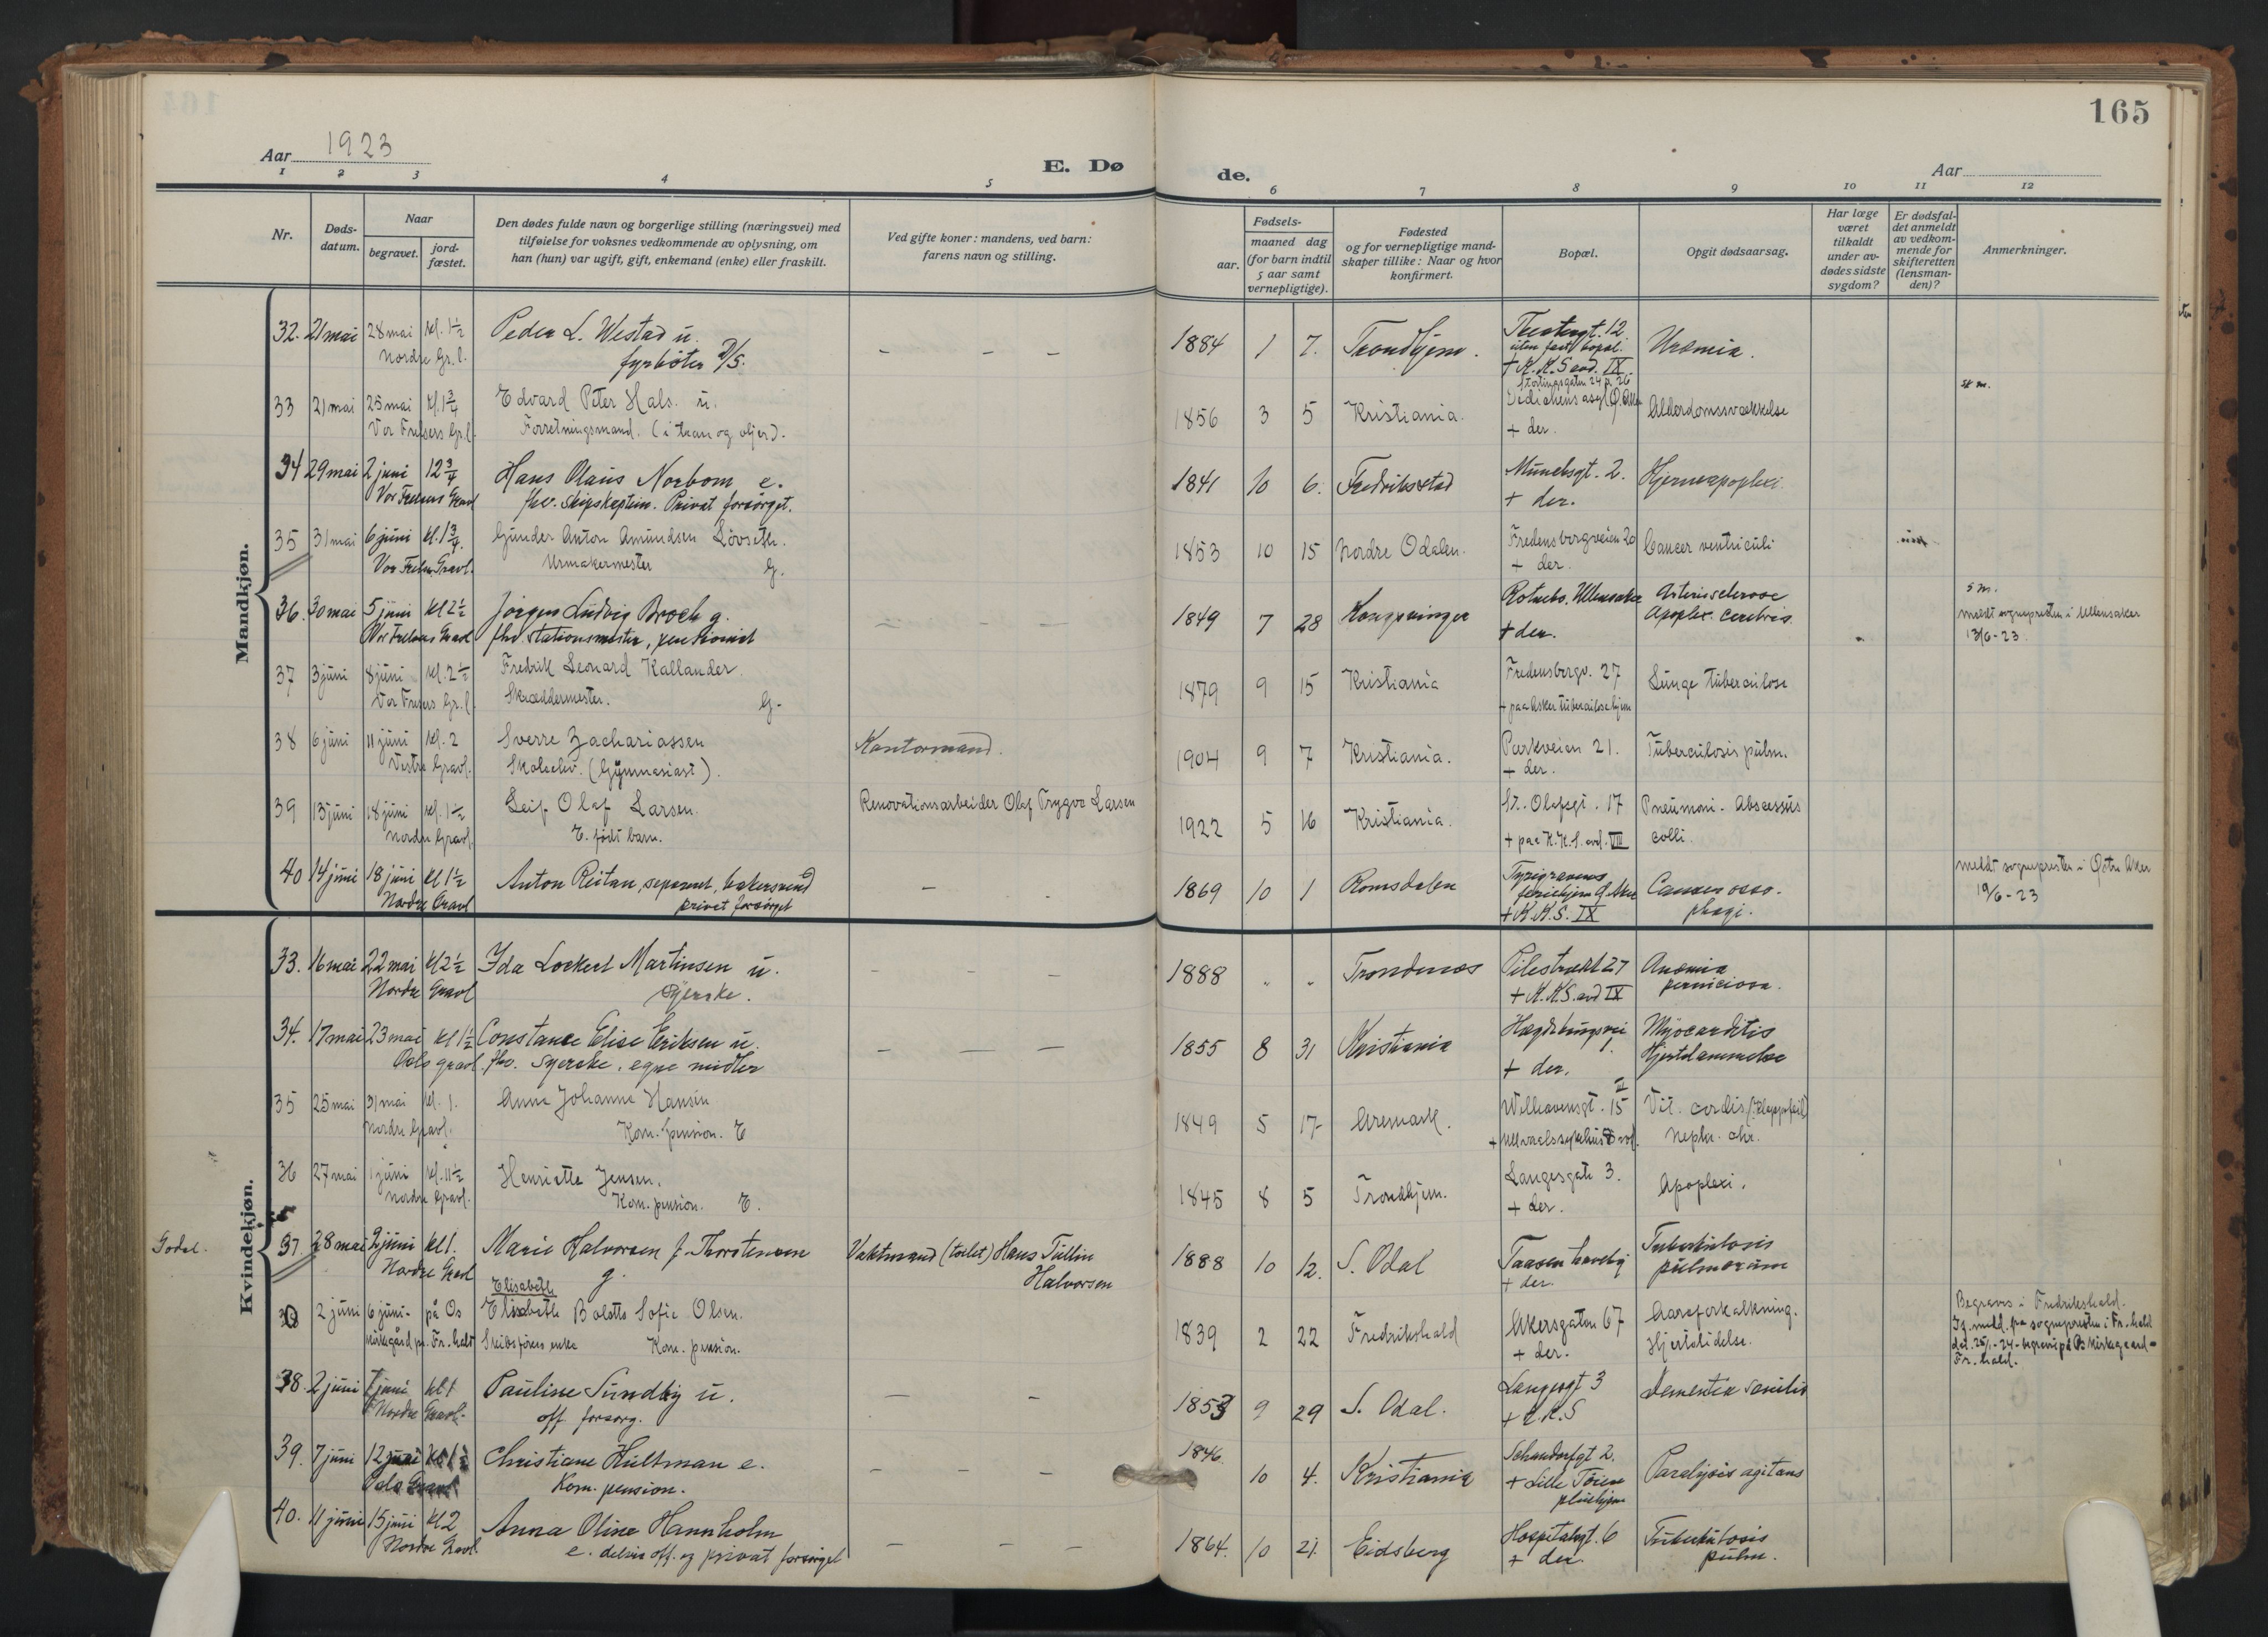 165
Aar 1923
E. Døde.
Aar
1 2 3 4 5 6 7 8 9 10 11 12
Nr.
Døds-
datum.
Naar
begravet.
jord-
fæstet.
Den dødes fulde navn og borgerlige stilling (næringsvei) med
tilføielse for voksnes vedkommende av oplysning, om
han (hun) var ugift, gift, enkemand (enke) eller fraskilt.
Ved gifte koner: mandens, ved barn:
farens navn og stilling.
Fødsels-
aar.
maaned dag
(for barn indtil
5 aar samt
vernepligtige).
Fødested
og for vernepligtige mand-
skaper tillike: Naar og hvor
konfirmert.
Bopæl.
Opgit dødsaarsag.
Har læge
været
tilkaldt
under av-
dødes sidste
sygdom?
Er dødsfal-
det anmeldt
av vedkom-
mende for
skifteretten
(lensman-
den)?
Anmerkninger.
Mandkjøn.
32. 21 mai 28 mai kl. 1½ Peder L. Westad u. — — — 1884 1 7. Trondhjem. 12 Uræmia.
Nordre Gr.l. fyrbøter D/S. uten fast bopæl.
+ K.K.S avd. IX
33 21 mai 25 mai kl. 1¾ Edvard Peter Hals. u. 1856 3 5 Kristiania. Stortingsgaten 24 26 Alderdomssvækkelse
Vor Frelsers Gr.l. Forretningsmand. (i tran og oljer). + der.
34 29 mai 2 juni 12¾ Hans Olaus Norbom e. 1841 10 6. Fredriksstad Munchsgt. 2. Hjerneapoplexi
Vor Frelsers Gravl fhv. skipskaptein. Privat forsørget. + der.
35 31 mai 6 juni kl. 1¾ Gunder Anton Amundsen Løvseth. 1853 10 15 Nordre Odalen. Fredensborgveien 20 Cancer ventriculi
Vor Frelsers Gravl. Urmakermester G. + der.
36. 30 mai 5 juni kl 2½ Jørgen Ludvig Broch g. — — — 1849 7 28 Kongsvinger Rotnebo. Ullensaker Arteriosclerose
Vor Frelsers Gravl fhv. stationsmester, pensionist + der. Apoplex. cerebris.
5 m.
meldt sogneprester i Ullensaker
13/6-23
37 3 juni 8 juni kl. 2½ Fredrik Leonard Kallander 1879 9 15 Kristiania Fredensborgv. 27 Lunge tuberculose
Vor Frelsers Gr.l. Skræddermester. G. + paa Asker tuberculosehjem
38 6 juni 11 juni kl. 2 Sverre Zachariassen Kontormand. 1904 9 7 Kristiania. Parkveien 21. Tuberculosis pulm.
Vestre Gravl. Skoleelev. (Gymnasiast). + der.
39 13 juni 18 juni kl. 1½ Leif Olaf Larsen. Renovationsarbeider Olaf Trygve Larsen 1922 5 16 Kristiania. St. Olafsgt. 17 Pneumoni - Abscessus
Nordre Gravl. E. født barn. + paa K.K.S. avd. VIII colli.
40 14 juni 18 juni kl 1½ Anton Reitan, separert, bakersvend — 1869 10 1 Romsdalen Tyrigravens Cancer oeso-
Nordre Gravl privat forsørget feriehjem Ø. Aker phagi.
+ K.K.S. IX
meldt sogneprester i Østre Aker
19/6-23
Kvindekjøn.
33. 16 mai 22 mai kl 2½ Ida Lockert Martinsen u. — — — 1888 " " Trondenes Pilestrædet 27 Anæmia
Nordre Gravl syerske. + K.K.S. avd IX perniciosa.
34. 17 mai 23 mai kl 1½ Constance Elise Eriksen u. — — — 1855 8 31 Kristiania Hægdehaugsvei 1. Myocarditis
Oslo gravl. fhv. syerske. egne midler + der. Hjertelammelse
35 25 mai 31 mai kl. 1. Anne Johanne Hansen 1849 5 17 Aremark. Welhavensgt. 15 III Vit. cordis (: Klappefeil)
Nordre Gravl. Kom. pension. E + Ullevaal sykehus 8 avd. Nephr. chr.
36 27 mai 1 juni kl. 11½ Henriette Jensen. 1845 8 5 Trondhjem. Langesgate 3. Apoplexi.
Nordre Gravl. Kom. pension. E. + der.
Godal.
37. 28 mai 2 juni kl 1. Marie Halvorsen f. Thorstensen Vaktmand (toldt) Hans Tullin 1888 10 12. S. Odal Taasen haveby Tuberkulosis
Nordre Gravl g. Halvorsen + der. pulmorum
Elisabeth
2 juni 6 juni på Os Elisabeth Bolette Sofie Olsen. 1839 2 22 Fredrikshald Akersgaten 67 Aareforkalkning.
kirkegård pr. Fr.hald Skibsførers enke Kom. pension. + der. Hjertelidelse.
Begraves i Fredrikshald.
Ig. meld. fra sogneprestn i Fr.hald
dat. 25/1-24 - begravet på Os kirkegaard -
Fr. hald.
38. 2 juni 7 juni kl 1 Pauline Sundby u. — — 1853 9 29 S. Odal. Langesgt 3 Dementia senilis
Nordre Gravl. off. forsørg. + K.K.S
39. 7 juni 12 juni kl 1½ Christiane Hultman e. — — — 1846. 10 4. Kristiania Schandorfgt 2. Paralysis agitans
Oslo Gravl Kom. pension. + Lille Tøien
pleiehjem
40. 11 juni 15 juni kl 2 Anna Oline Hannholm — — — 1864. 10 21. Eidsberg Hospitalsgt. 6 Tuberkulosis
Nordre Gravl. e. delvis off. og privat forsørget + der. pulm.